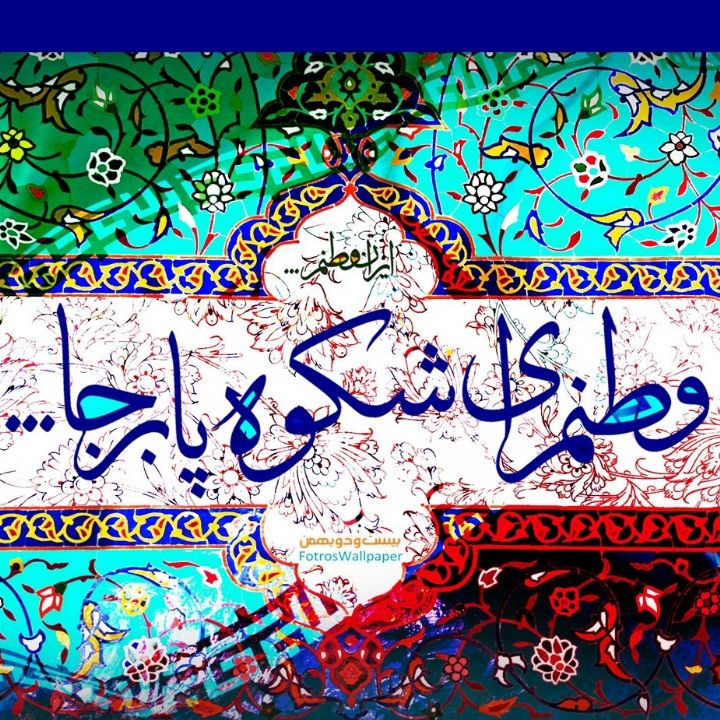 ایران وطنم...
وطنم ای شکوه پابرجا...
بیست و دو بهمن
FotrosWallpaper